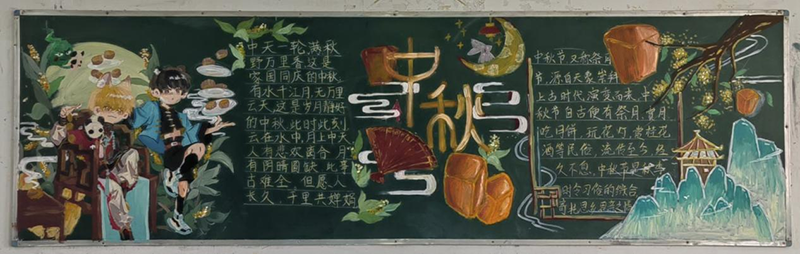 中天一轮满秋
野万里香这是
家国同庆的中秋
有水千江月,无万里
云天,这是岁月静好
的中秋,此时此刻
云在水中,月上中天
人有悲欢离合,月
有阴晴圆缺,此事
古难全,但愿人
长久,千里共婵娟
中秋
中秋节又称祭月
节,源自天象崇拜
上古时代演变而来,中
秋节自古便有祭月,赏月
吃月饼,玩花灯,赏桂花
酒等民俗,流传至今,经
久不息,中秋节是秋季
时令习俗的综合